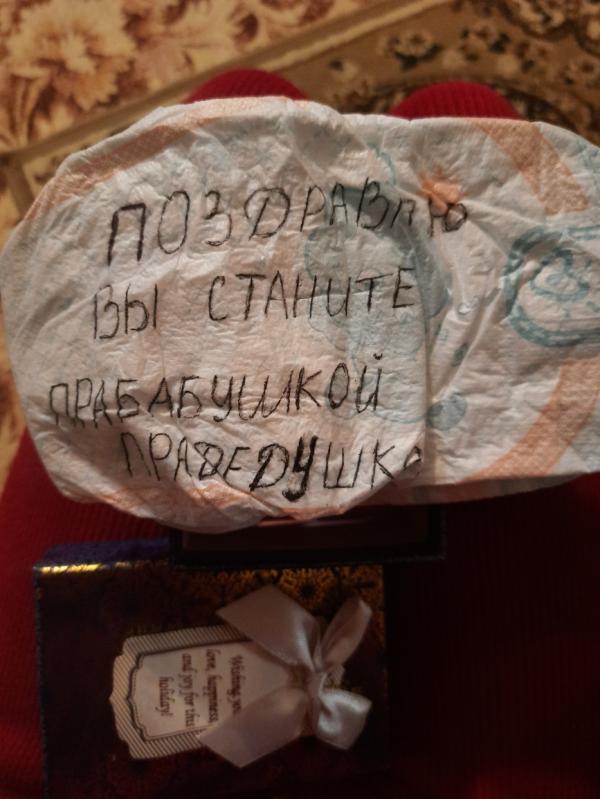 ПОЗДРАВЛЮ
ВЫ СТАНИТЕ
ПРАБАБУШКОЙ
ПРАДЕДУШКО
Wishing you
love, happiness,
and joy for this
holiday!